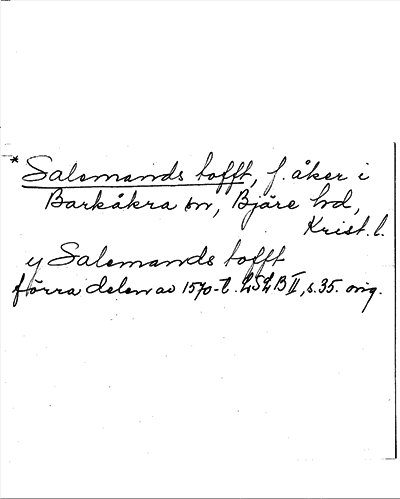 * Salemands tofft, f. åker i
Barkåkra sn, Bjäre hd,
Krist. l.
y Salemands tofft
förra delen av 1570-t. LSLB II, s. 35. orig.